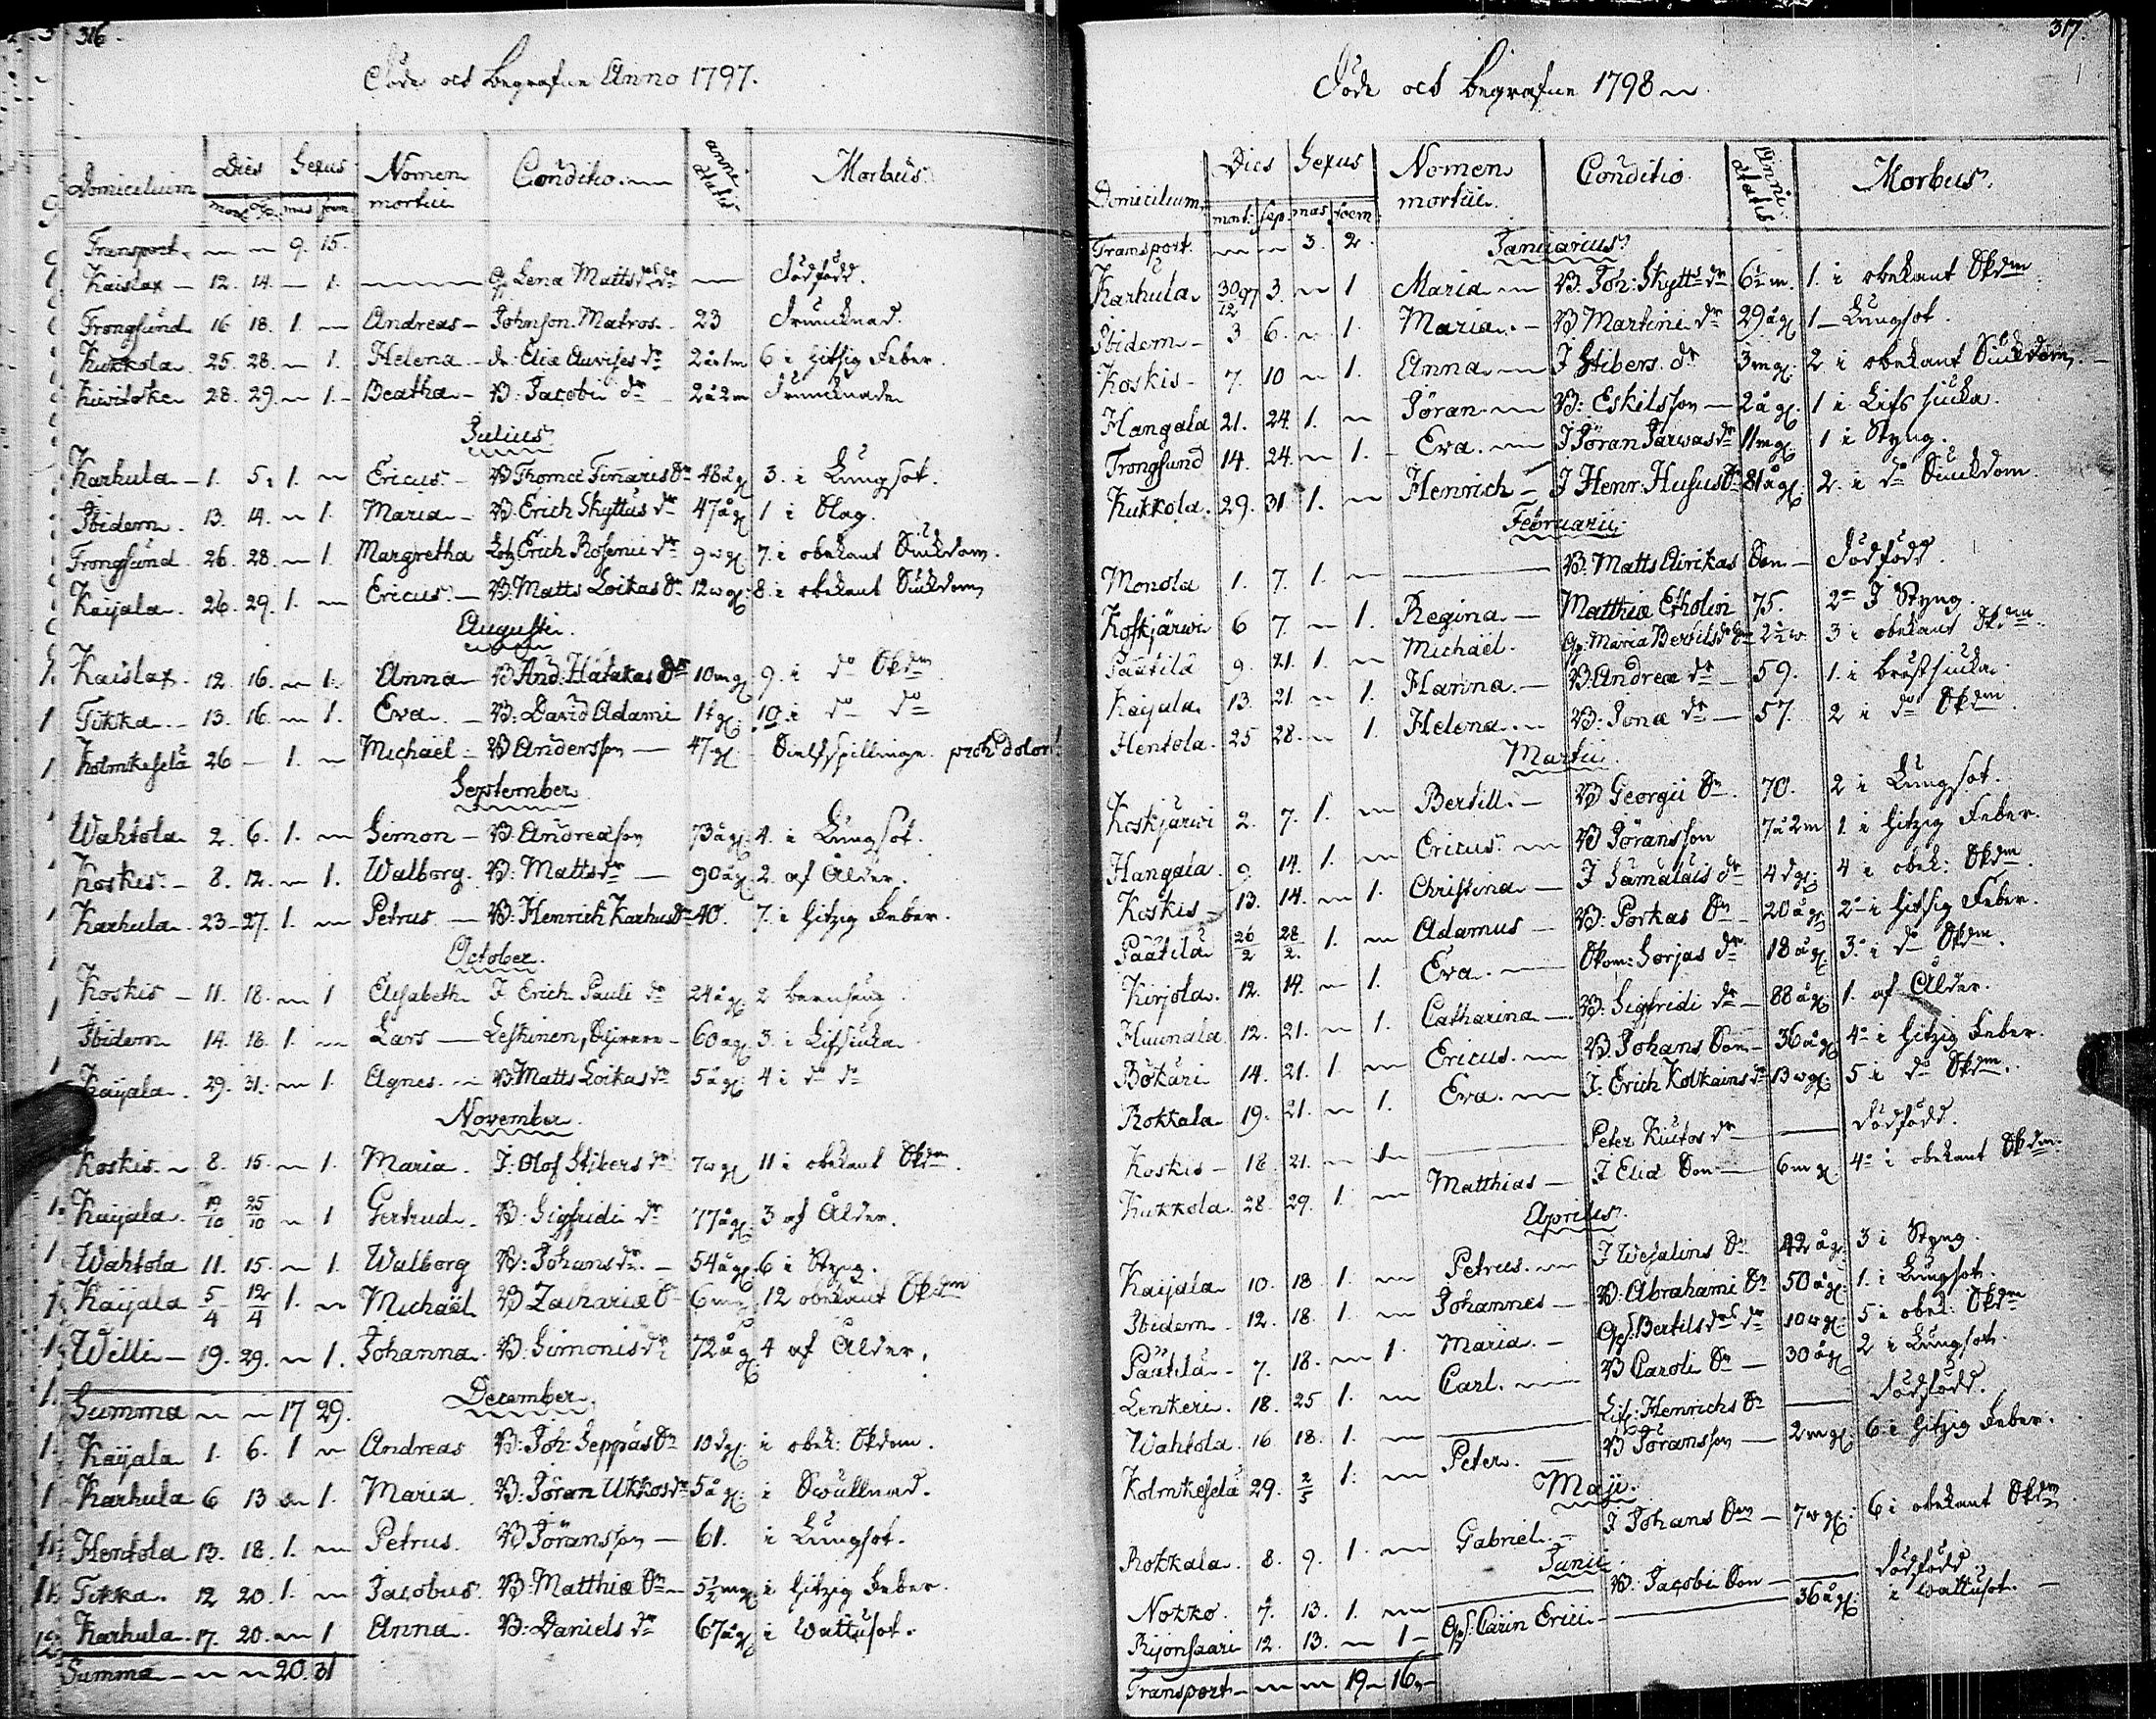 316.
Döde och Begrafne Anno 1797.
Domicilium Dies Sexus Nomen mortui Conditio Anni ætatis Morbus
mort. sep. mas foem
Transport 9. 15.
Kaislax 12. 14. 1. Qp Lena Mattsd:s dr Dödfödd.
Trongsund 16 18. 1. Andreas Johnson Matros 23 Druncknad.
Kukkola 25. 28. 1. Helena dr: Eliæ Auvises dr 2 å 1m 6 i Hitsig Feber.
28. 29. 1. Beatha B. Jacobi dr 2 å 2m Druncknade
Julius
Karhula 1. 5. 1. Ericus B Thomæ Tiñaris Sn 48 å gl 3. i Lungsot.
Ibidem 13. 14. 1. Maria B. Erich Skyttus dr 47 å gl 1 i Slag.
Trongsund 26. 28. 1. Margretha Lotz Erich Rosenii dr 9 w gl 7. i obekant Siukdom.
Kaijala 26. 29. 1. Ericus B. Matts Loikas Sn 12 w gl 8. i obekant Siukdom
Augusti.
Kaislax 12. 16. 1. Anna B And: Hatakas dr 10 m gl 9. i do Skdm
Tikka 13. 16. 1. Eva B: David Adami 1 t gl. 10 i do do
Kolmikeselä 26 1. Michaël B Andersson 47 gl Sielfspillinge. proh dolor!
September
Wahtola 2. 6. 1. Simon B. Andreæson 73 å gl. 4. i Lungsot.
Koskis 8. 12. 1. Walborg. B: Mattsdr 90 å gl. 2. af Ålder.
Karhula 23 27. 1. Petrus B: Henrich Karhus Sn 40. 7. i Hitzig Feber.
October.
Koskis 11. 18. 1 Elisabeth I Erich Pauli dr 24 å gl. 2 barnsäng
Ibidem 14. 18. 1. Lars Leskinen, 60 å gl. 3. i Lifsiuka
Kaijala 29. 31. 1. Agnes B. Matts Loikas dr 5 å gl. 4 i do do
November.
Koskis 8. 15. 1. Maria I: Olof Stibers dr 7 w gl 11 i obekant Skdm.
Kaijala 19/10 25/10 1 Gertrud B: Sigfridi dr 77 å gl. 3 af Ålder.
Wahtola 11. 15. 1. Walborg B: Johans dr. 54 å gl. 6 i Styng.
Kaijala 5/4 12/4 1. Michaël B Zachariæ S 6 m gl 12 obekant Skdm
Willi 19. 29. 1. Johanna B: Simonis dr 72 å gl. 4 af Ålder.
Summa 17 29. December.
Kaijala 1. 6. 1 Andreas B: Joh: Seppäs Sn 10 d gl. i obek: Skdom.
Karhula 6 13 1. Maria. B: Jöran Ukkos dr 5 å gl. i Swullnad.
Hentola 13. 18. 1. Petrus. B Jöransson 61. i Lungsot.
Tikka 12 20. 1. Jacobus. B: Matthiæ Sn 5½ m gl. i Hitzig Feber.
Karhula 17. 20. 1 Anna. B: Daniels dr 67 å gl i Wattusot.
Summa 20. 31
317.
Döde och Begrafne 1798
Domicilium Dies Sexus Nomen mortui Conditio Anni ætatis Morbus
mort. sep. mas foem
Transport 3. 2. Januarius
Karhula 30/12 97 3. 1 Maria B. Joh: Skytts dr 6½ m. 1. i obekant Skdm
Ibidem 3 6. 1. Maria B Martini dr 29 å gl. 1 Lungsot.
Koskis 7. 10 1. Anna I Stibers dr 3 m gl. 2 i obekant Siukdom.
Hangala 21. 24. 1. Jöran B: Eskilsson 2 å gl. 1 i Lifsiuka.
Trongsund 14. 24. 1. Eva I Jöran Parwas dr 11 m gl. 1 i Styng.
Kukkola. 29. 31. 1. Henrich I Henr: Husus Sn 81 å gl. 2. i do Siukdom
Februarii
Monola 1. 7. 1. B. Matts Airikas Son Dödfödd.
Koskjärwi 6 7. 1. Regina Matthiæ Etholin 75. 2 I Styng.
Päätilä 9. 21. 1. Michaël. Qp: Maria Bertilsdr 2½ w 3 i obekant Skdm.
Kaijala 13. 21 1. Hanna B Andreæ dr 59. 1. i bröstsiuka.
Hentola 25 28. 1. Helena B: Jonæ dr 57. 2 i do Skdm
Martii.
Koskjärwi 2. 7. 1. Bertill B Georgii Sn. 70. 2 i Lungsot.
Hangala 9. 14. 1. Ericus B Jöransson 7 å 2 m 1 i Hitzig Feber.
Koskis 13. 14. 1. Christina I Sämäläis dr 4 d gl. 4 i obek: Skdm.
Päätilä 26/2 28/2 1. Adamus B: Porkas Sn 20 å gl 2 i Hitsig Feber.
Kirjola. 12. 14. 1. Eva Skom: Sorjas dr 18 å gl. 3. i do Skdm.
Huunala 12. 21. 1. Catharina B: Sigfridi dr 88 å gl. 1. af Ålder.
Bökäri 14. 21. 1 Ericus B. Johans Son 36 å gl 4 i Hitzig Feber.
Rokkala 19. 21. 1. Eva I. Erich Kolkains dr 13 w gl. 5 i do Skdm.
Koskis 18. 21. 1 Peter Kiutos dr Dödfödd.
Kukkola 28. 29. 1. Matthias I Eliæ Son 6 m gl. 4 i obekant Skdm.
Aprilis.
Kaijala 10. 18. 1. Petrus I Wesalins Sn 42 å gl. 3 i Styng.
Ibidem 12. 18. 1. Johannes B: Abrahami Sn 50 å gl. 1. i Lungsot.
Päätilä 7. 18. 1. Maria Qps: Bertils drs dr 10 w gl. 5 i obek: Skdm
Lenkeri 18. 25 1. Carl B Caroli Sn 30 å gl 2 i Lungsot.
Wahtola 16. 18. 1. Henrichs Sn Dödfödd.
Kolmikeselä 29. 2/5 1. Peter B Jöransson 2 m gl. 6 i Hitzig Feber.
Maji.
Rokkala 8. 9. 1. Gabriel I Johans Son 7 w gl. 6 i obekant Skdm
Junii
Nokko 13. 1. B. Jacobi Son Dödfödd.
Rijonsaari 12. 13. 1 Qps: Carin Erici 36 å gl. i Wattusot.
Transport 19 16.